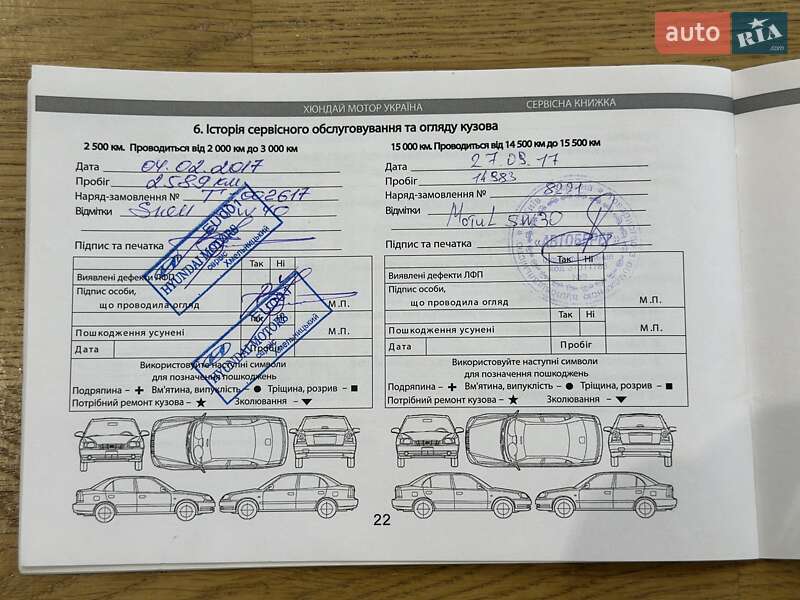 auto RIA.com
ХЮНДАЙ МОТОР УКРАЇНА
СЕРВІСНА КНИЖКА
6. Історія сервісного обслуговування та огляду кузова
2 500 км. Проводиться від 2 000 км до 3 000 км
Дата 04.02.2017
Пробіг 2589 км
Наряд-замовлення №
Відмітки
Підпис та печатка
Так Ні
Виявлені дефекти ЛФП
Підпис особи,
що проводила огляд М.П.
Так
Пошкодження усунені М.П.
Дата Пробіг
Використовуйте наступні символи
для позначення пошкоджень
Подряпина - Вм'ятина, випуклість - Тріщина, розрив -
Потрібний ремонт кузова - Зколювання -
EU001
HYUNDAI MOTORS
сервіс Хмельницький
EU001
HYUNDAI MOTORS
сервіс Хмельницький
15 000 км. Проводиться від 14 500 км до 15 500 км
Дата 27.09.17
Пробіг 14983
Наряд-замовлення № 8221
Відмітки Motul 5W30
Підпис та печатка
Так Ні
Виявлені дефекти ЛФП
Підпис особи,
що проводила огляд М.П.
Так Ні
Пошкодження усунені М.П.
Дата Пробіг
Використовуйте наступні символи
для позначення пошкоджень
Подряпина - Вм'ятина, випуклість - Тріщина, розрив -
Потрібний ремонт кузова - Зколювання -
22